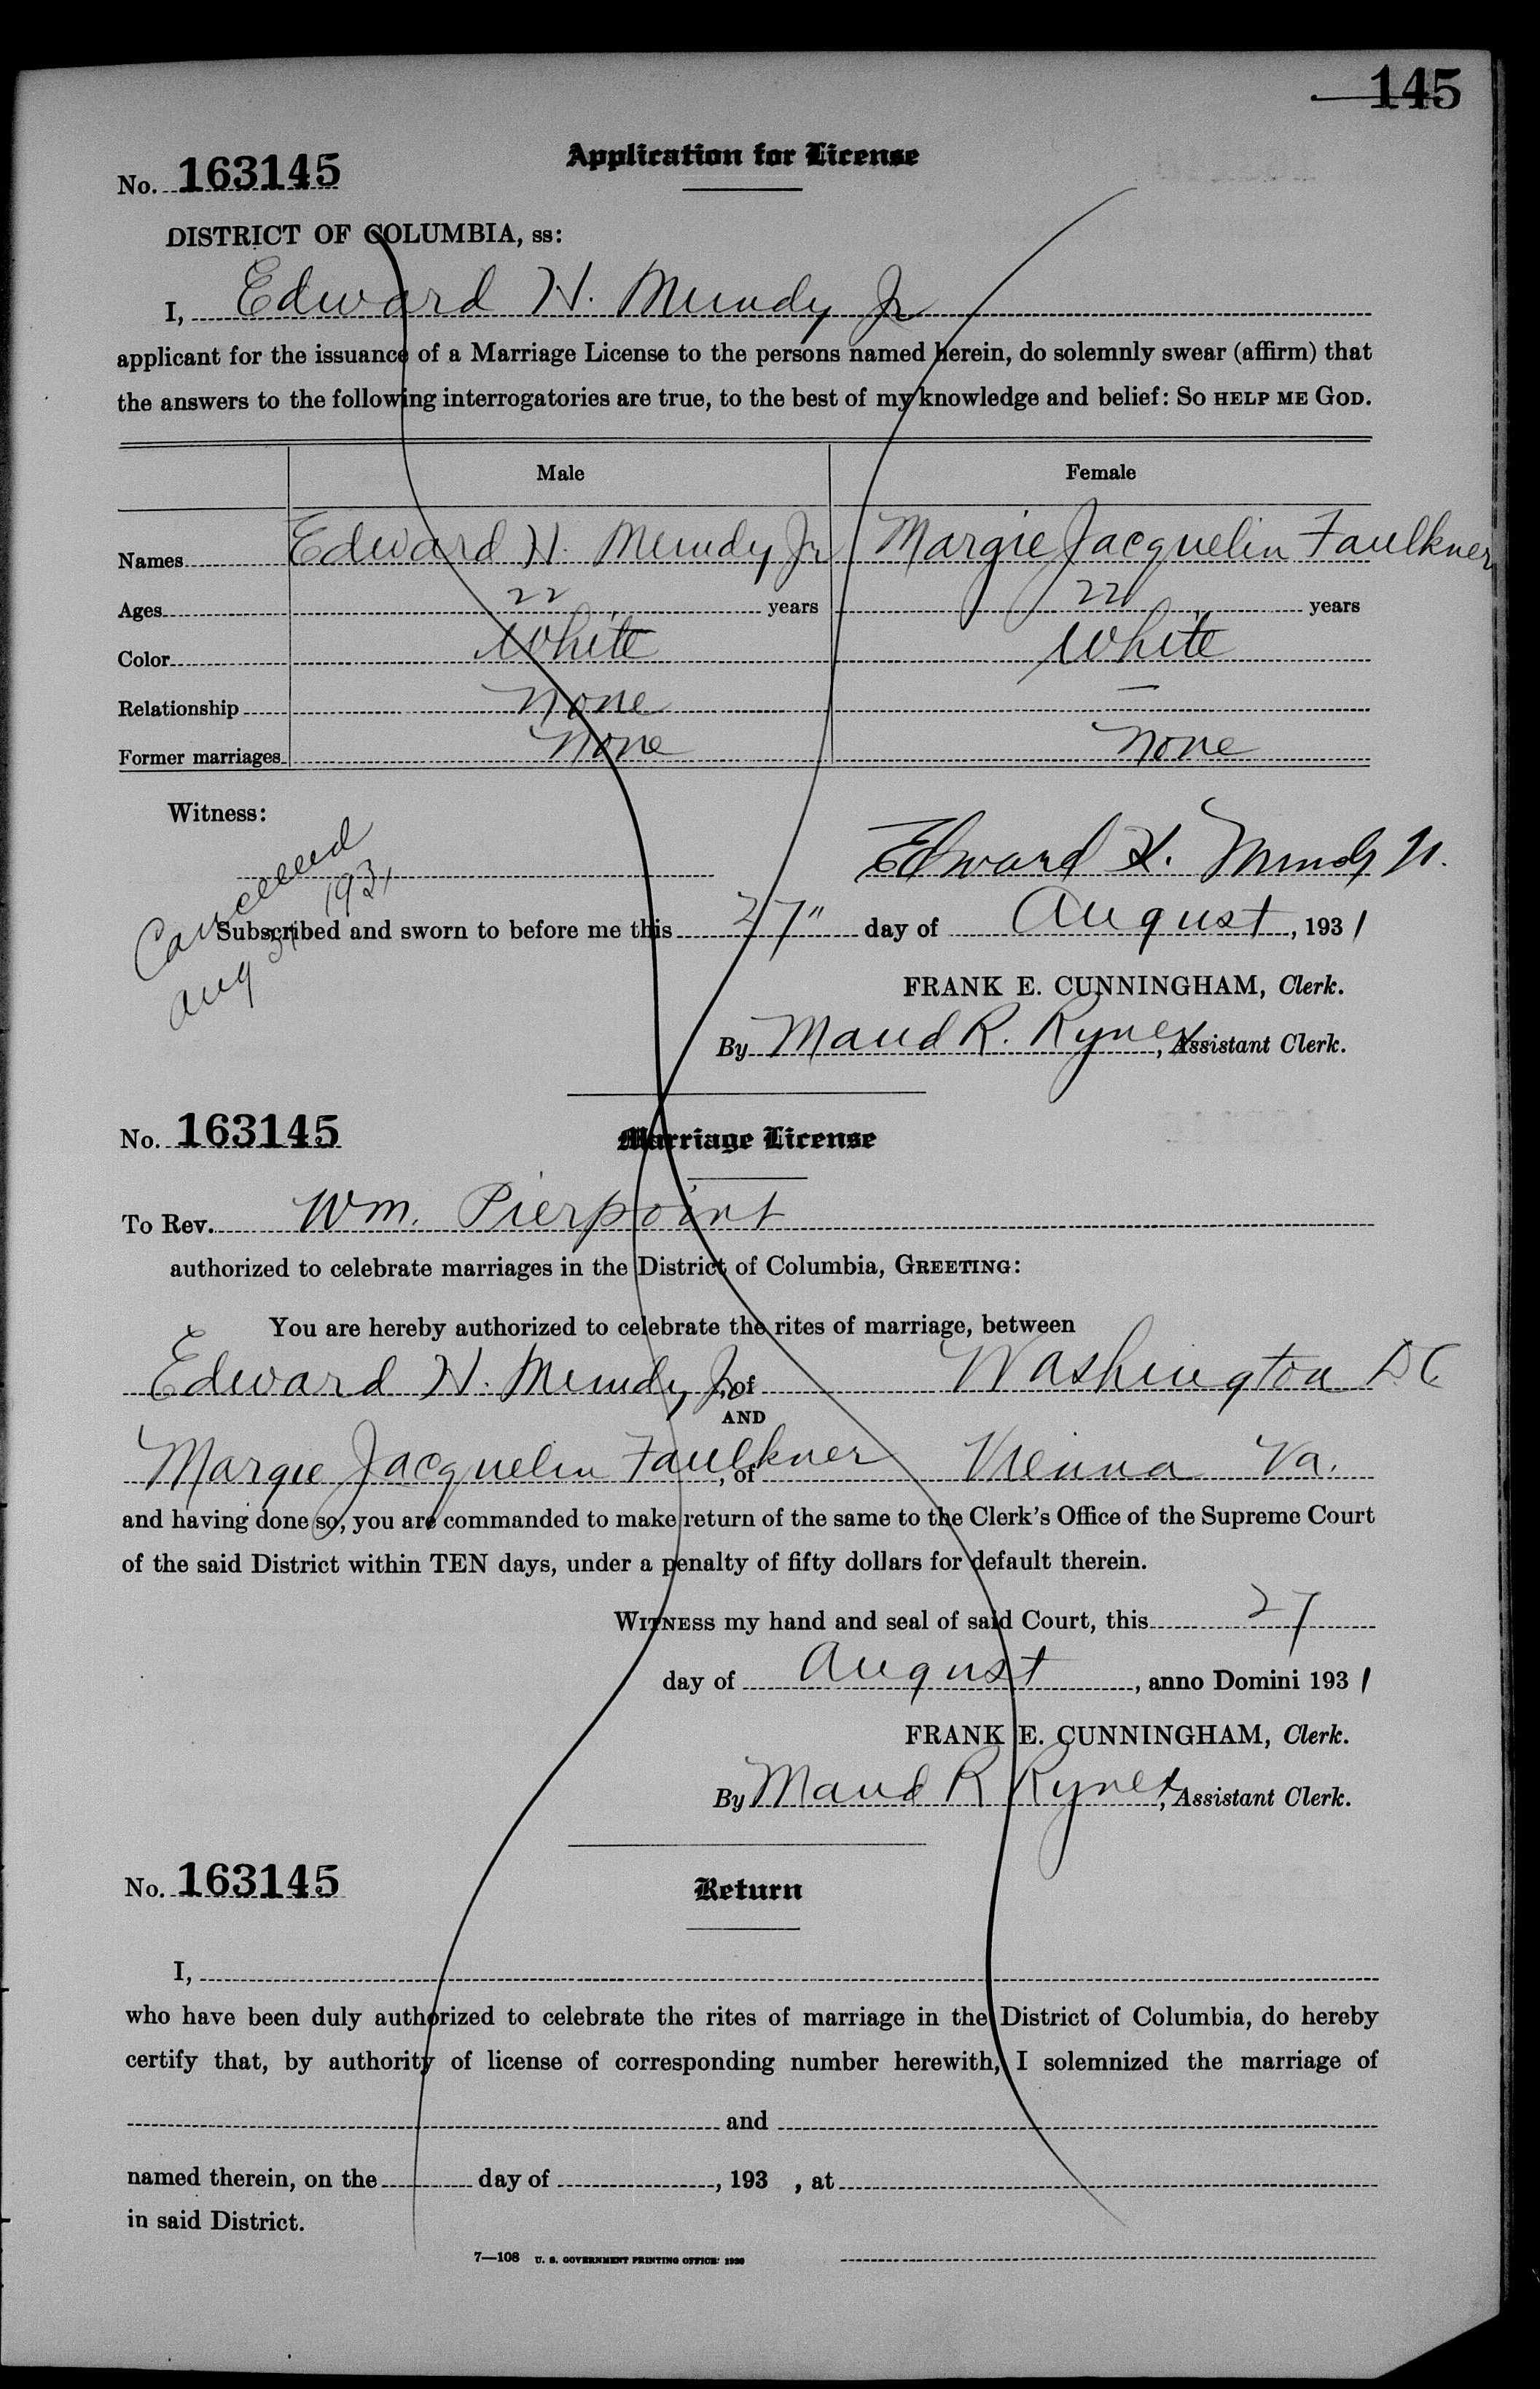 145
Application for License
No. 163145
DISTRICT OF COLUMBIA, ss:
I, Edward H. Mundy Jr
applicant for the issuance of a Marriage License to the persons named herein, do solemnly swear (affirm) that
the answers to the following interrogatories are true, to the best of my knowledge and belief: So HELP ME GOD.
Male Female
Names Edward H. Mundy Jr Margie Jacquelin Faulkner
Ages 22 years 22 years
Color White White
Relationship None —
Former marriages None None
Witness:
Edward H. Mundy Jr.
Cancelled
Aug 31 1931
Subscribed and sworn to before me this 27" day of August, 1931
FRANK E. CUNNINGHAM, Clerk.
By Maud R. Rynex, Assistant Clerk.
No. 163145
Marriage License
To Rev. Wm. Pierpoint
authorized to celebrate marriages in the District of Columbia, GREETING:
You are hereby authorized to celebrate the rites of marriage, between
Edward H. Mundy Jr, of Washington D.C
AND
Margie Jacquelin Faulkner, of Vienna Va.
and having done so, you are commanded to make return of the same to the Clerk's Office of the Supreme Court
of the said District within TEN days, under a penalty of fifty dollars for default therein.
WITNESS my hand and seal of said Court, this 27
day of August, anno Domini 1931
FRANK E. CUNNINGHAM, Clerk.
By Maud R Rynex, Assistant Clerk.
No. 163145
Return
I,
who have been duly authorized to celebrate the rites of marriage in the District of Columbia, do hereby
certify that, by authority of license of corresponding number herewith, I solemnized the marriage of
and
named therein, on the day of , 193 , at
in said District.
7—108 U. S. GOVERNMENT PRINTING OFFICE: 1930